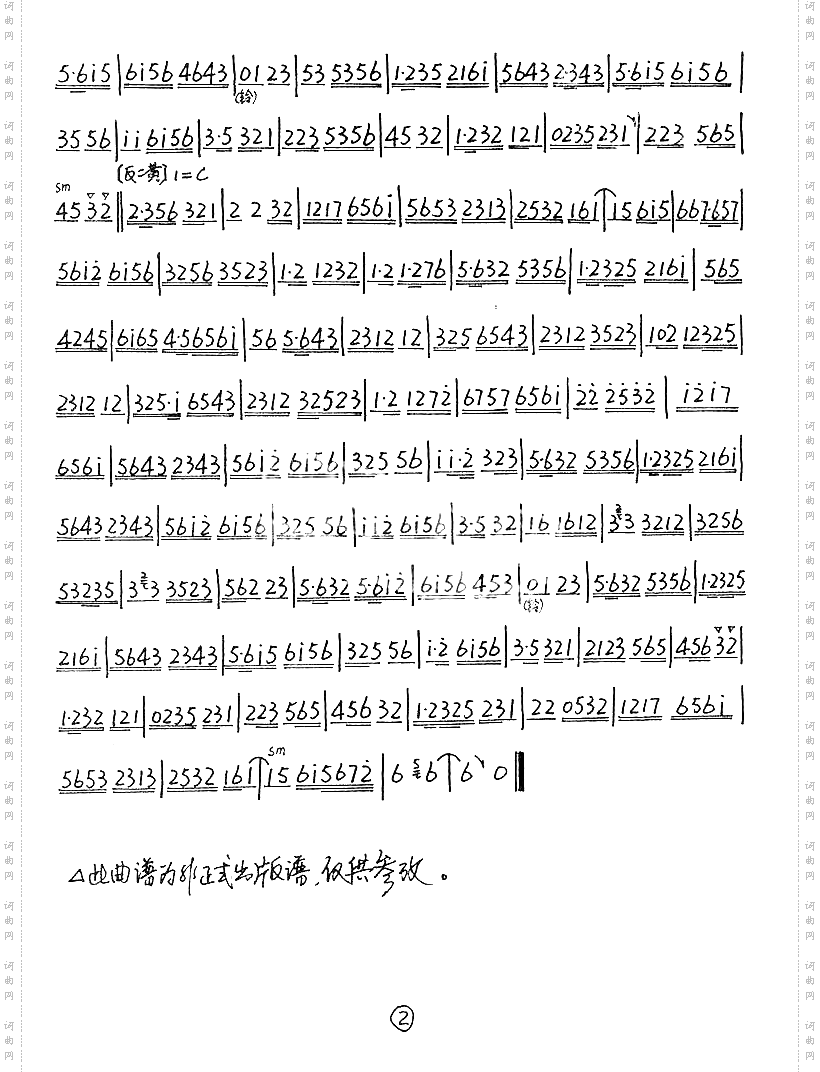 5·6i5|6i56 4643|01 23|53 5356|1·235 216i|5643 2·343|5·6i5 6i56|
(铃)
35 56|ii 6i56|3·5 321|223 5356|45 32|1·232 121|0235 231|223 565|
〔反二黄〕1=C
sm
45 32‖2·356 321|2 2 32|1217 656i|5653 2313|2532 161|15 6i5|667·657|
56i2̇ 6i56|3256 3523|1·2 1232|1·2 1·276|5·632 5356|1·2325 216i|565
4245|6i65 4·5656i|56 5·643|2312 12|325 6543|2312 3523|102 12325|
2312 12|325·i 6543|2312 32523|1·2 1272̇|6757 656i|2̇2̇ 2̇5̇3̇2̇|i2̇i7
656i|5643 2343|56i2̇ 6i56|325 56|ii·2̇ 323|5·632 5356|1·2325 216i|
5643 2343|56i2̇ 6i56|325 56|ii2̇ 6i56|3·5 32|16 1612|3 3 3212|3256
53235|3 3 3523|562 23|5·632 5·6i2̇|6i56 453|01 23|5·632 5356|1·2325
(铃)
216i|5643 2343|5·6i5 6i56|325 56|i·2̇ 6i56|3·5 321|2123 565|456 32|
1·232 121|0235 231|223 565|456 32|1·2325 231|22 0532|1217 656i|
sm
5653 2313|2532 161|15 6i5672̇|6 5 6|6 0‖
△此曲谱为非正式出版谱,仅供参考。
②
词曲网